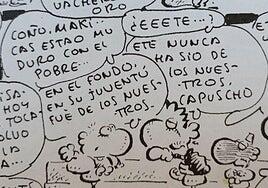 VACHE
ORO
COÑO, MARI-
CAS ESTAO MU
DURO CON EL
POBRE...
¿EEETE...
ETE NUNCA
HA SIO DE
LOS NUES-
TROS,
CAPUSCHO
EN EL FONDO,
EN SU JUVENTÚ
FUE DE LOS NUES-
TROS.
HOY
TOCA
LA